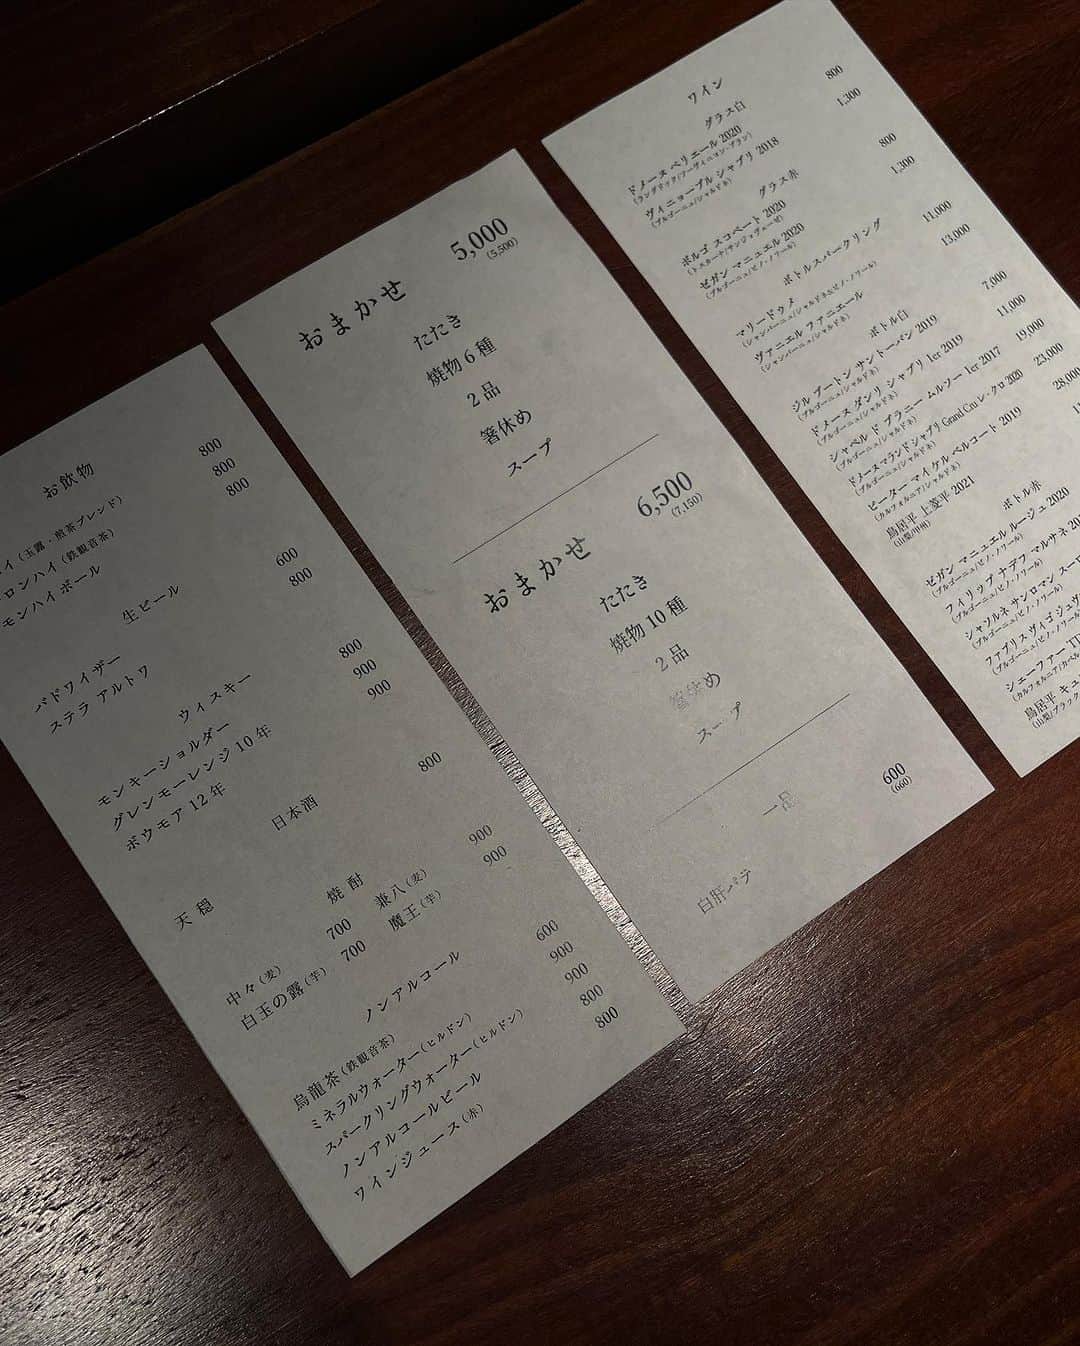 お飲物
イ（玉露・煎茶ブレンド） 800
ロンハイ（鉄観音茶） 800
モンハイボール 800
生ビール
バドワイザー 600
ステラ アルトワ 800
ウィスキー
モンキーショルダー 800
グレンモーレンジ 10 年 900
ボウモア 12 年 900
日本酒
天穏 800
焼酎
中々（麦） 700 兼八（麦） 900
白玉の露（芋） 700 魔王（芋） 900
ノンアルコール
烏龍茶（鉄観音茶） 600
ミネラルウォーター（ヒルドン） 900
スパークリングウォーター（ヒルドン） 900
ノンアルコールビール 800
ワインジュース（赤） 800
おまかせ 5,000
(5,500)
たたき
焼物 6 種
2 品
箸休め
スープ
おまかせ 6,500
(7,150)
たたき
焼物 10 種
2 品
箸休め
スープ
一品
白肝パテ 600
(660)
ワイン
グラス白
ドメーヌ ペリエール 2020 800
(ラングドック/ソーヴィニヨン・ブラン)
ヴィニョーブル シャブリ 2018 1,300
(ブルゴーニュ/シャルドネ)
グラス赤
ボルゴ スコペート 2020 800
(トスカーナ/サンジョヴェーゼ)
ゼガン マニュエル 2020 1,300
(ブルゴーニュ/ピノ・ノワール)
ボトルスパークリング
マリードゥメ 11,000
ヴァニエル ファニエール 13,000
(シャンパーニュ/シャルドネ)
ボトル白
ジル ブートン サントーバン 2019 7,000
(ブルゴーニュ/シャルドネ)
ドメーヌ ダンリ シャブリ 1er 2019 11,000
(ブルゴーニュ/シャルドネ)
シャペル ド ブラニー ムルソー 1er 2017 19,000
(ブルゴーニュ/シャルドネ)
ドメーヌマランド シャブリ Grand Cru レ・クロ 2020 23,000
(ブルゴーニュ/シャルドネ)
ピーターマイケル ベルコート 2019 28,000
(カルフォルニア/シャルドネ)
鳥居平 上菱平 2021
(山梨/甲州)
ボトル赤
ゼガン マニュエル ルージュ 2020
(ブルゴーニュ/ピノ・ノワール)
フィリップ ナデフ マルサネ
(ブルゴーニュ/ピノ・ノワール)
シャソルネ サンロマン
(ブルゴーニュ/ピノ・ノワール)
ファブリス ヴィゴ
(ブルゴーニュ/ピノ・ノワール)
シェーファー
(カルフォルニア/
鳥居平
(山梨/ブラック